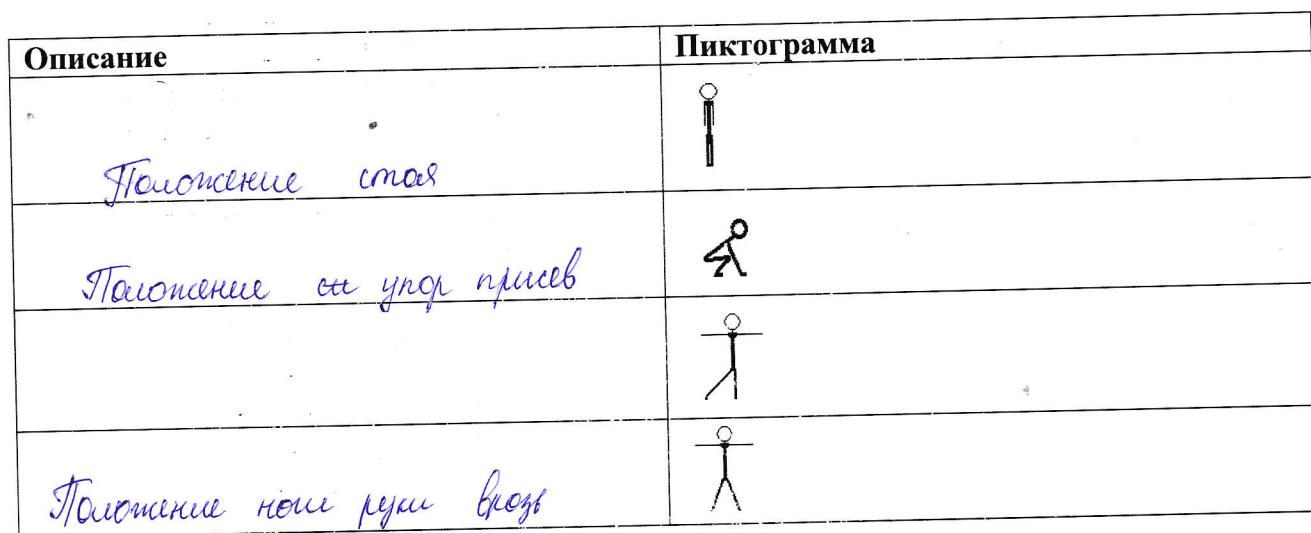 Описание
Пиктограмма
Положение стоя
Положение упор присев
Положение ноги руки врозь